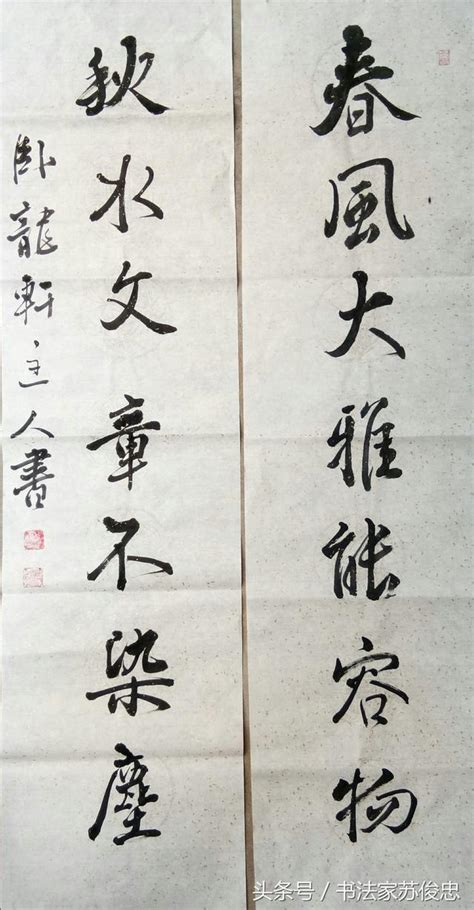 春風大雅能容物
秋水文章不染塵
卧龍軒主人書
头条号 / 书法家苏俊忠